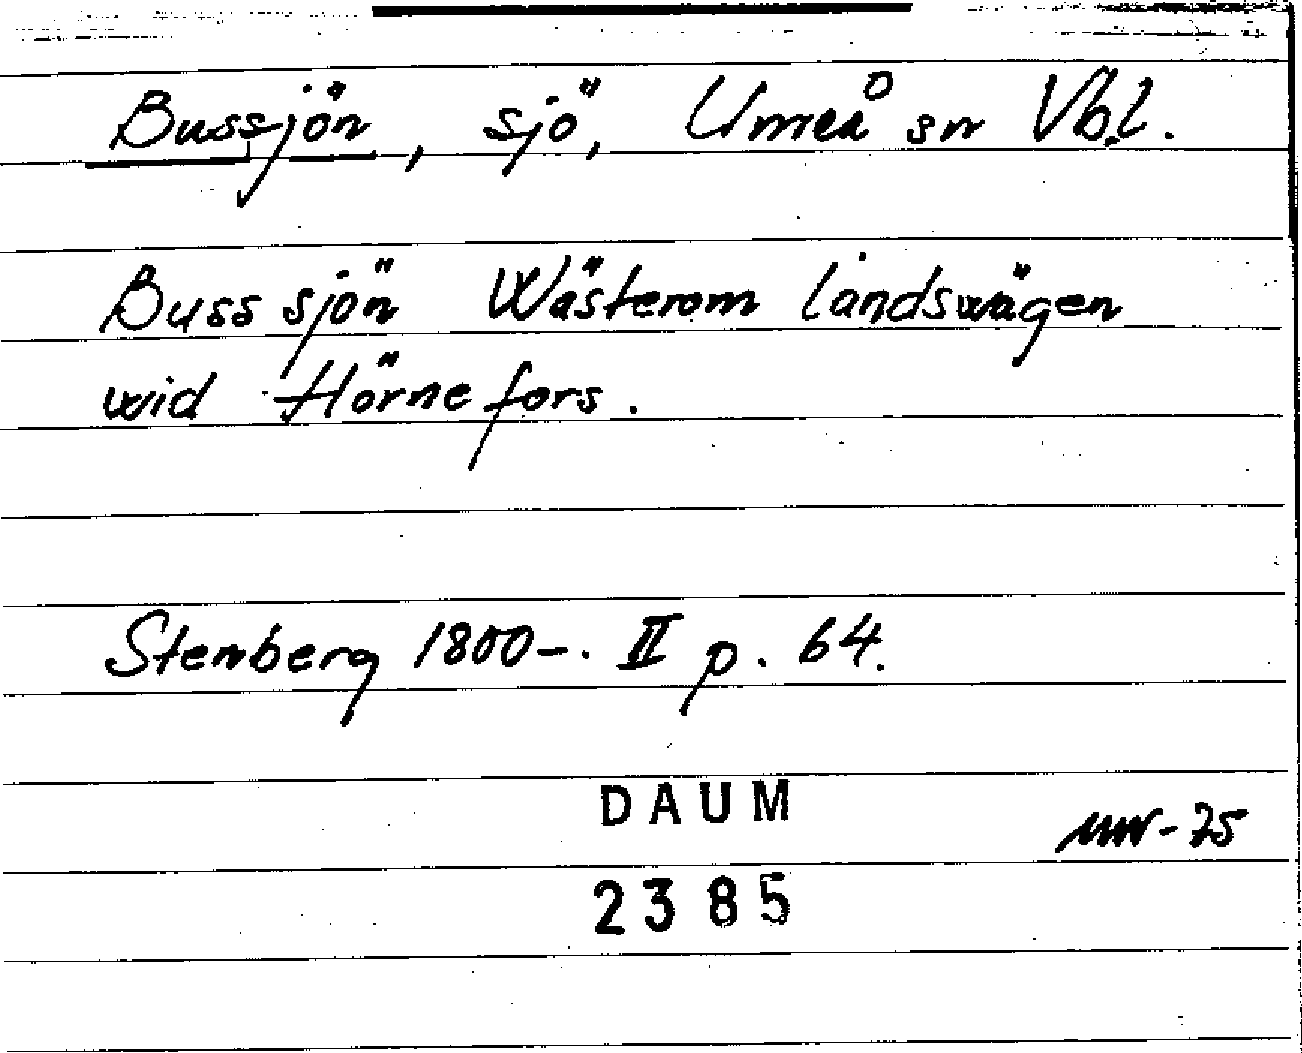 Bussjön, sjö, Umeå sn Vbl.
Buss sjön Wästerom landswägen
wid Hörnefors.
Stenberg 1800-. II p. 64.
DAUM
mw-75
2385